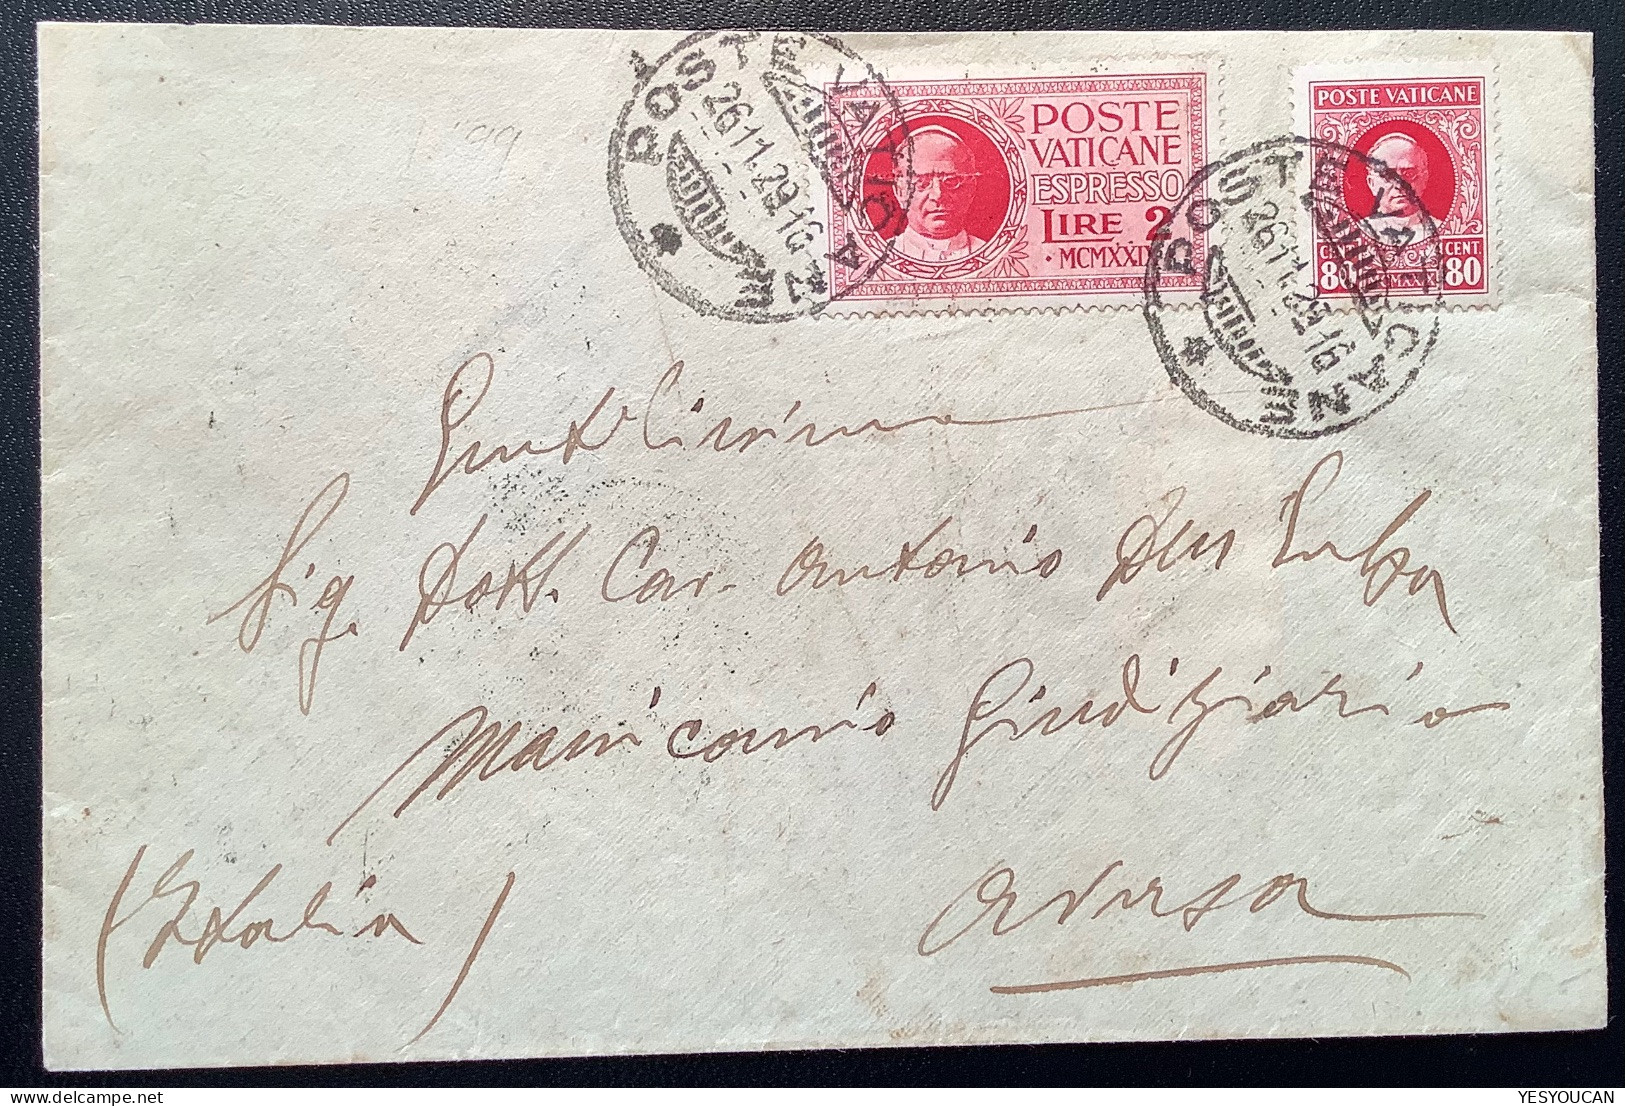 POSTE VATICANE
26.11.29.16
POSTE
VATICANE
ESPRESSO
LIRE 2
· MCMXXIX
POSTE VATICANE
26.11.29.16
POSTE VATICANE
CENT
80 80
Gentilissimo
Sig. Dott. Cav. Antonio
Manicomio Giudiziario
Aversa
(Italia)
YESYOUCAN